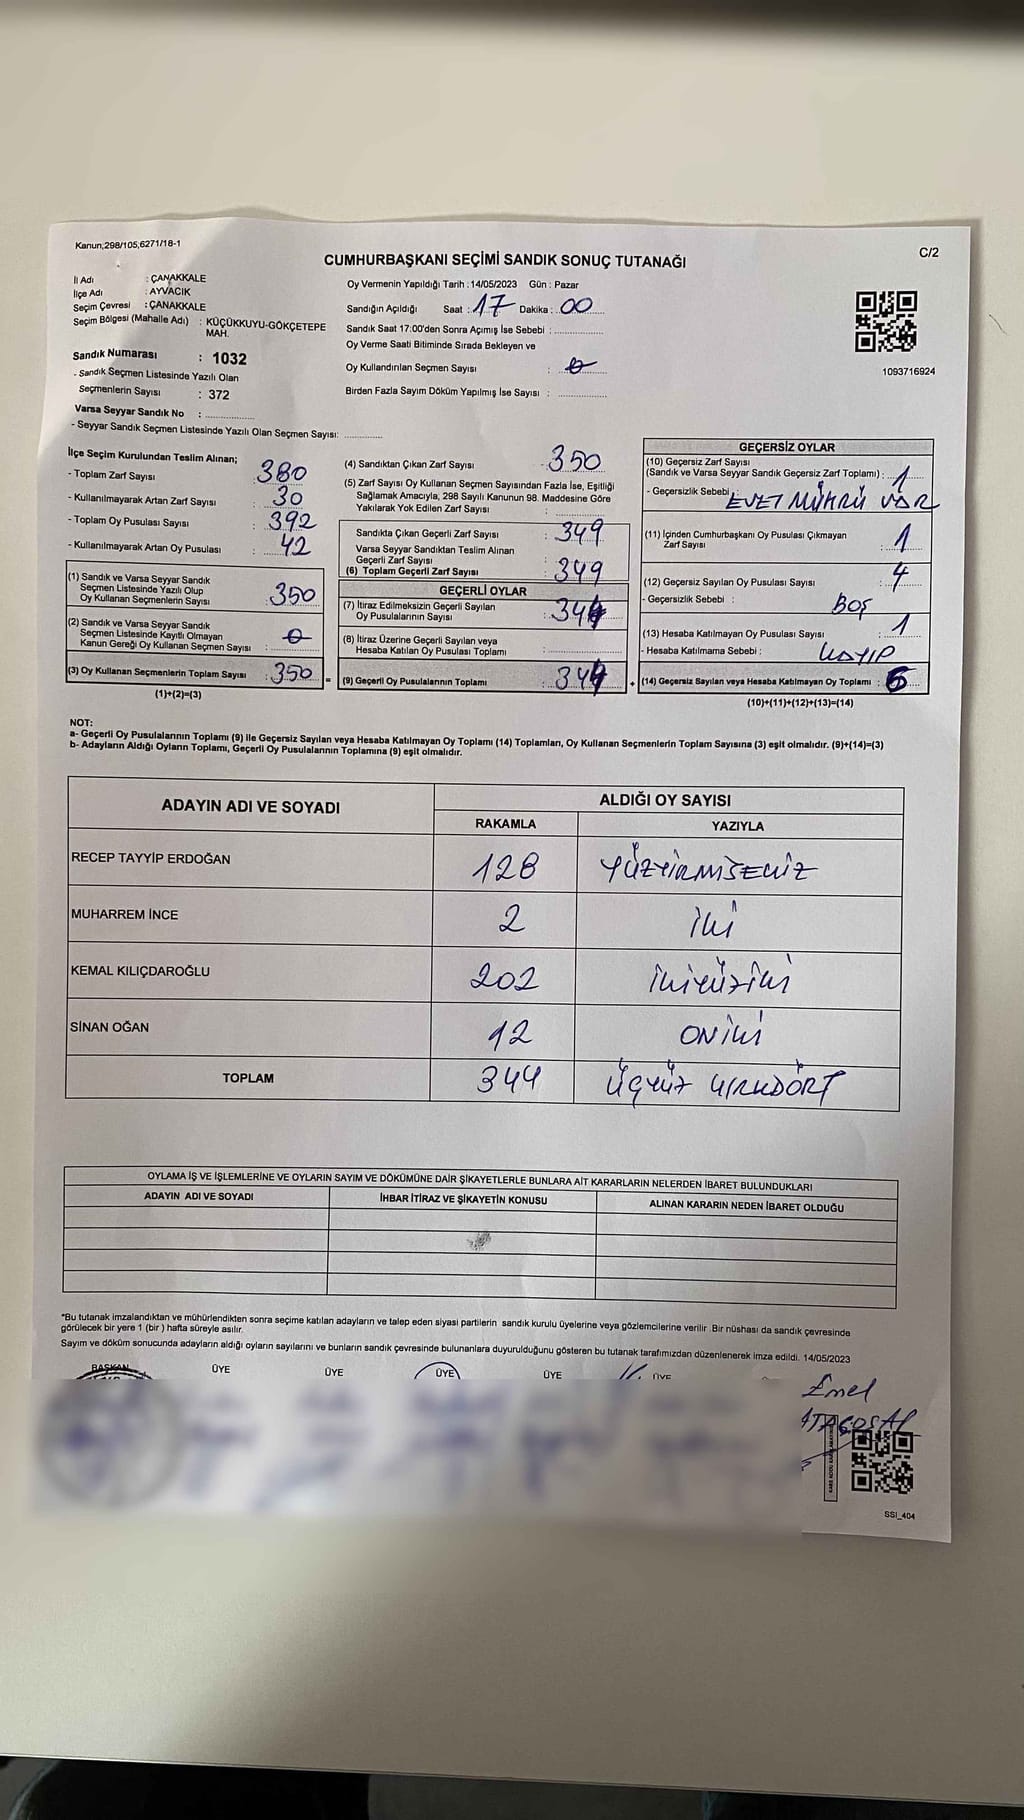 Kanun;298/105,6271/18-1
CUMHURBAŞKANI SEÇİMİ SANDIK SONUÇ TUTANAĞI
C/2
İl Adı : ÇANAKKALE
İlçe Adı : AYVACIK
Seçim Çevresi : ÇANAKKALE
Seçim Bölgesi (Mahalle Adı) : KÜÇÜKKUYU-GÖKÇETEPE
MAH.
Sandık Numarası : 1032
- Sandık Seçmen Listesinde Yazılı Olan
Seçmenlerin Sayısı : 372
Varsa Seyyar Sandık No :
- Seyyar Sandık Seçmen Listesinde Yazılı Olan Seçmen Sayısı:
Oy Vermenin Yapıldığı Tarih : 14/05/2023 Gün : Pazar
Sandığın Açıldığı Saat : 17 Dakika : 00
Sandık Saat 17:00'den Sonra Açımış İse Sebebi :
Oy Verme Saati Bitiminde Sırada Bekleyen ve
Oy Kullandırılan Seçmen Sayısı : 0
Birden Fazla Sayım Döküm Yapılmış İse Sayısı :
1093716924
İlçe Seçim Kurulundan Teslim Alınan;
- Toplam Zarf Sayısı : 380
- Kullanılmayarak Artan Zarf Sayısı : 30
- Toplam Oy Pusulası Sayısı : 392
- Kullanılmayarak Artan Oy Pusulası : 42
(1) Sandık ve Varsa Seyyar Sandık
Seçmen Listesinde Yazılı Olup
Oy Kullanan Seçmenlerin Sayısı : 350
(2) Sandık ve Varsa Seyyar Sandık
Seçmen Listesinde Kayıtlı Olmayan
Kanun Gereği Oy Kullanan Seçmen Sayısı : 0
(3) Oy Kullanan Seçmenlerin Toplam Sayısı : 350
(1)+(2)=(3)
(4) Sandıktan Çıkan Zarf Sayısı : 350
(5) Zarf Sayısı Oy Kullanan Seçmen Sayısından Fazla İse, Eşitliği
Sağlamak Amacıyla, 298 Sayılı Kanunun 98. Maddesine Göre
Yakılarak Yok Edilen Zarf Sayısı :
Sandıkta Çıkan Geçerli Zarf Sayısı : 349
Varsa Seyyar Sandıktan Teslim Alınan
Geçerli Zarf Sayısı :
(6) Toplam Geçerli Zarf Sayısı : 349
GEÇERLİ OYLAR
(7) İtiraz Edilmeksizin Geçerli Sayılan
Oy Pusulalarının Sayısı : 344
(8) İtiraz Üzerine Geçerli Sayılan veya
Hesaba Katılan Oy Pusulası Toplamı :
= (9) Geçerli Oy Pusulalarının Toplamı : 344
GEÇERSİZ OYLAR
(10) Geçersiz Zarf Sayısı
(Sandık ve Varsa Seyyar Sandık Geçersiz Zarf Toplamı) : 1
- Geçersizlik Sebebi : EVET MÜHRÜ VAR
(11) İçinden Cumhurbaşkanı Oy Pusulası Çıkmayan
Zarf Sayısı : 1
(12) Geçersiz Sayılan Oy Pusulası Sayısı : 4
- Geçersizlik Sebebi : BOŞ
(13) Hesaba Katılmayan Oy Pusulası Sayısı : 1
- Hesaba Katılmama Sebebi : KAYIP
+ (14) Geçersiz Sayılan veya Hesaba Katılmayan Oy Toplamı : 6
(10)+(11)+(12)+(13)=(14)
NOT:
a- Geçerli Oy Pusulalarının Toplamı (9) ile Geçersiz Sayılan veya Hesaba Katılmayan Oy Toplamı (14) Toplamları, Oy Kullanan Seçmenlerin Toplam Sayısına (3) eşit olmalıdır. (9)+(14)=(3)
b- Adayların Aldığı Oyların Toplamı, Geçerli Oy Pusulalarının Toplamına (9) eşit olmalıdır.
ADAYIN ADI VE SOYADI ALDIĞI OY SAYISI
RAKAMLA YAZIYLA
RECEP TAYYİP ERDOĞAN 128 YÜZYİRMİSEKİZ
MUHARREM İNCE 2 İKİ
KEMAL KILIÇDAROĞLU 202 İKİYÜZİKİ
SİNAN OĞAN 12 ONİKİ
TOPLAM 344 ÜÇYÜZ KIRKDÖRT
OYLAMA İŞ VE İŞLEMLERİNE VE OYLARIN SAYIM VE DÖKÜMÜNE DAİR ŞİKAYETLERLE BUNLARA AİT KARARLARIN NELERDEN İBARET BULUNDUKLARI
ADAYIN ADI VE SOYADI İHBAR İTİRAZ VE ŞİKAYETİN KONUSU ALINAN KARARIN NEDEN İBARET OLDUĞU
*Bu tutanak imzalandıktan ve mühürlendikten sonra seçime katılan adayların ve talep eden siyasi partilerin sandık kurulu üyelerine veya gözlemcilerine verilir. Bir nüshası da sandık çevresinde
görülecek bir yere 1 (bir ) hafta süreyle asılır.
Sayım ve döküm sonucunda adayların aldığı oyların sayılarını ve bunların sandık çevresinde bulunanlara duyurulduğunu gösteren bu tutanak tarafımızdan düzenlenerek imza edildi. 14/05/2023
BAŞKAN ÜYE ÜYE ÜYE ÜYE ÜYE
Emel
SSI_404